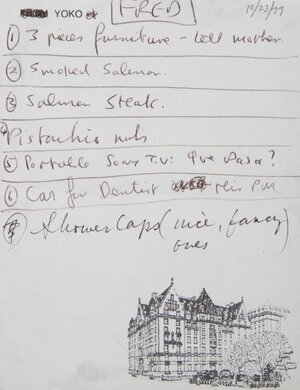 YOKO [FRED] 10/23/79
① 3 pieces furniture – call mother.
② Smoked Salmon.
③ Salmon Steak.
④ Pistachio nuts.
⑤ Portable Sony T.V: Que Pasa?
⑥ Car for Dentist this PM
⑦ Shower Caps (nice, fancy
ones